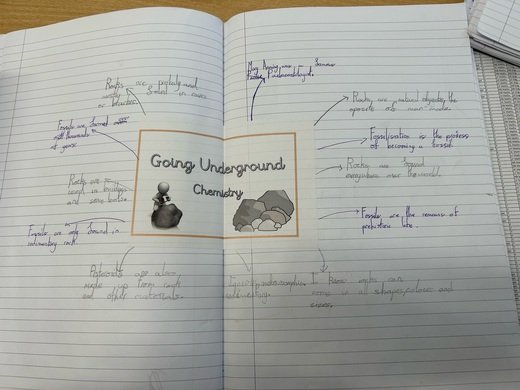 Rocks are probably and
usually found in caves
or beaches.
Fossils are formed over
thousands
of years
Rocks are
used in buildings
and some
Fossils are only found in
sedimentary rock
are also
made up from rock
and other materials.
Going Underground
Chemistry
Mary Anning was a famous
Rocks are natural objects, the
opposite of man-made.
Fossilisation is the process
of becoming a fossil.
Rocks are found
everywhere over the world.
Fossils are the remains of
prehistoric life.
metamorphic
sedimentary.
I know rocks can
come in all shapes, colours and
sizes.